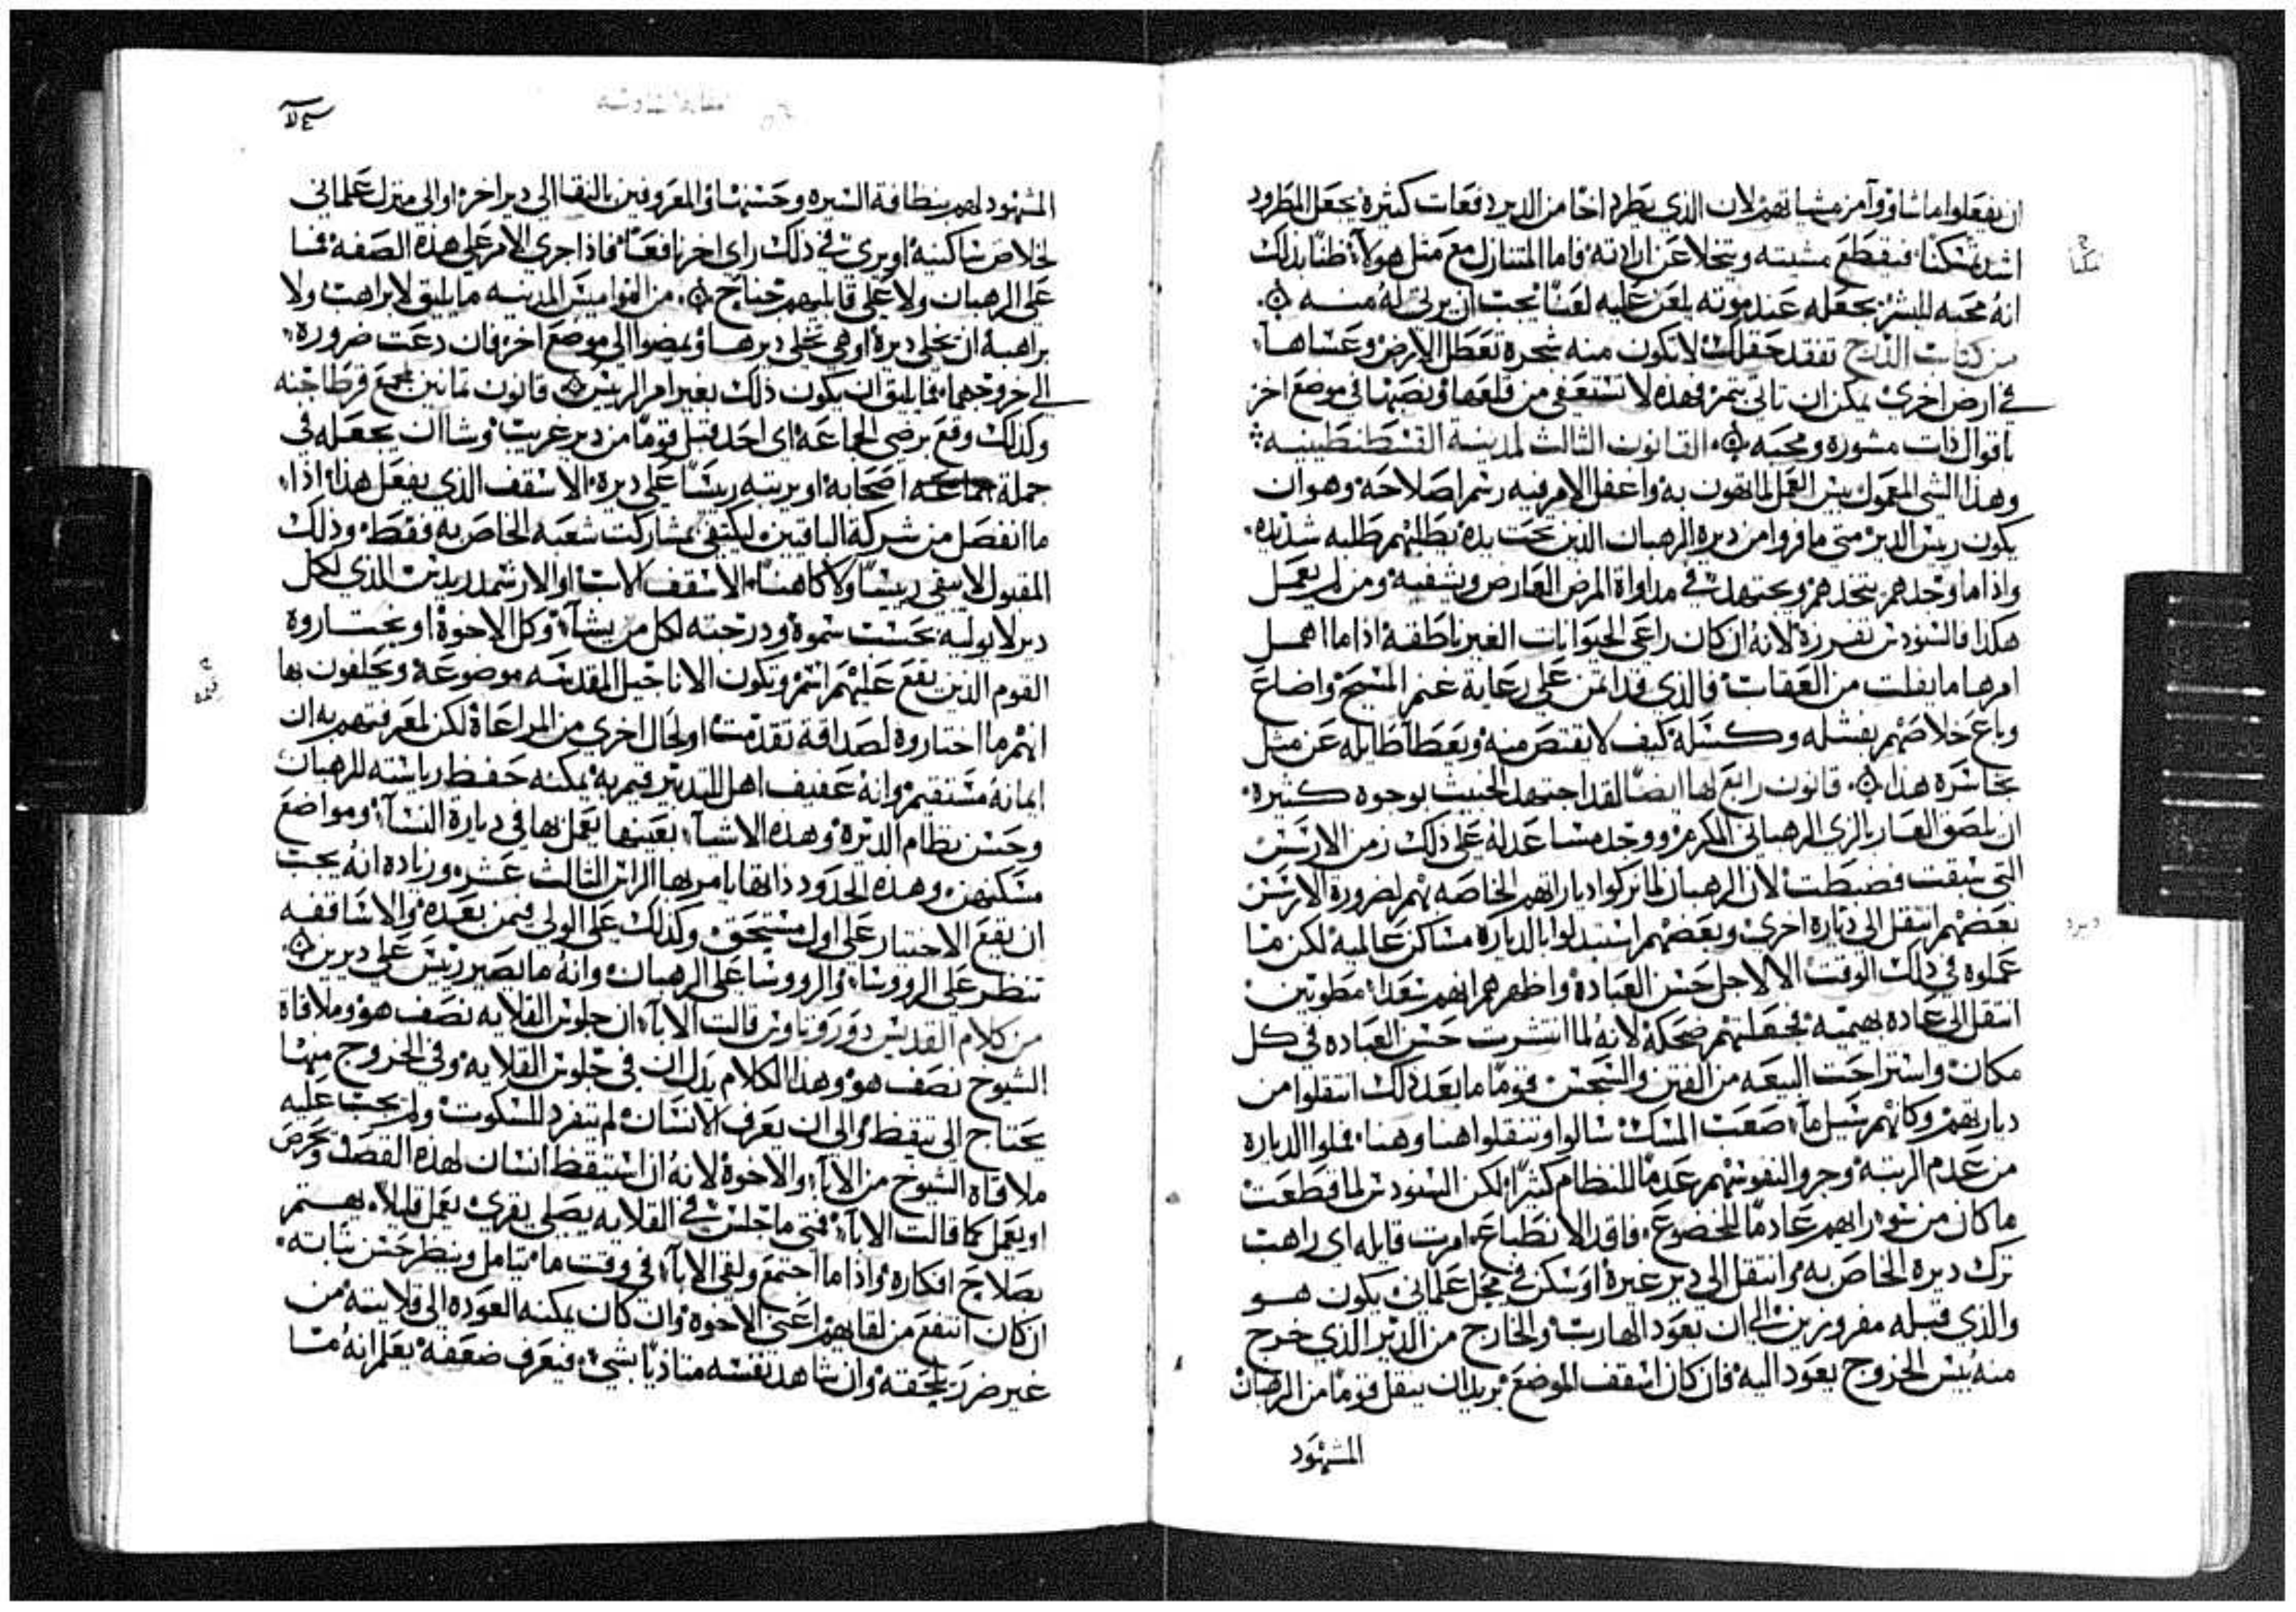 ان يفعلوا ما شاوو وآمر مشياتهم لان الذي يطرد اخا من الدير دفعات كثيرة يجعل المطرود
اشد تمسكنا فيقطع مشيته ويتخلا عن ارادته فاما المتنازل مع مثل هولآ ظنا بذلك
انه محبه للبشر يجعله عند موته يلعن عليه لعنا يجب ان يرثى له منه
من كتاب الدرج تفقد حقلك لا تكون منه شجرة تعطل الارض وعساها
في ارض اخرى يمكن ان تاتي بثمر فهذه لا تستعفى من قلعها ونصبها في موضع اخر
باقوال ذات مشورة ومحبه القانون الثالث لمدينة القسطنطينيه
وهذا الشي المعمول بيس العمل لما تهون به واغفل الامر فيه رسم اصلاحه وهو ان
يكون ريس الدير متى ما فروا من ديره الرهبان الذين تحت يده يطلبهم طلبه شديده
واذا ما وجدهم يتخدهم ويجتهد في مداواة المرض العارض ويشفيه ومن لم يعمل
هكذا فالسنودس تفرزه لانه ان كان راعي الحيوانات الغير ناطقة اذا ما اهمل
امرها ما يفلت من العقاب فالذي قد ائتمن على رعاية غنم المسيح واضاع
وباع خلاصهم بفشله وكسله كيف لا يقتص منه ويعطا طايله عن مثل
تجاسره هذا قانون رابع لها ايضا لقد اجتهد الخبيث بوجوه كثيره
ان يلصق العار بالزي الرهباني المكرم ووجد مساعدا له على ذلك زمن الارسس
التي سبقت فضبطت لان الرهبان لما تركوا دياراتهم الخاصه بهم لضرورة الارسس
بعضهم انتقل الى ديارة اخرى وبعضهم استبدلوا بالديارة مساكن عالمية لكن ما
عملوه في ذلك الوقت الا لاجل حسن العبادة واظهرهم انهم سعدا مطوبين
انتقل الى عاده بهيميه فجعلتهم ضحكة لانه لما انتشرت حسن العباده في كل
مكان واستراحت البيعه من الفتن والسجس قوما ما بعد ذلك انتقلوا من
ديارتهم وكانهم سيل مآ صعب المسك سالوا وتنقلوا هنا وهنا فملوا الدياره
من عدم الرتبه وجروا لنفوسهم عدما للنظام كثيرا لكن السنودس لما قطعت
ما كان من سو رايهم عادما للخضوع فاقد الانطباع امرت قايله اي راهب
ترك ديره الخاص به وانتقل الى دير غيره او سكن في محل علماني يكون هو
والذي قبله مفروزين الى ان يعود الهارب والخارج من الدير الذي خرج
منه بيس الخروج يعود اليه فان كان اسقف الموضع يريد ان ينقل قوما من الرهبان
المشهود
المشهود لهم بنظافة السيره وحسنها والمعروفين بالنقا الى دير اخر او الى منزل علماني
لخلاص ساكنيه او يرى في ذلك راى اخر نافعا فاذا جرى الامر على هذه الصفة فما
على الرهبان ولا على قابليهم جناح من النواميس المدنيه ما يليق لا براهب ولا
براهبة ان يخلي ديره او هي تخلي ديرها ويمضوا الى موضع اخر فان دعت ضروره
الى خروجهما فما يليق ان يكون ذلك بغير امر الريس قانون ثمانين لمجمع قرطاجنه
وكذلك وقع برضى الجماعة اي احد قبل قوما من دير غريب وشا ان يجعله في
جملة اصحابه او يرتبه ريسا على ديره الاسقف الذي يفعل هذا اذا
ما انفصل من شركة الباقين ليكتفي بمشاركت شعبه الخاص به فقط وذلك
المقبول لا يبقى ريسا ولا كاهنا الاسقف الاب او الارشمندريدس الذي لكل
دير لا يوليه بحسب سموه ودرجته لكل من يشآ وكل الاخوة او يختاروه
القوم الذين يقع عليهم انتم وتكون الاناجيل المقدسه موضوعة ويحلفون بها
انهم ما اختاروه لصداقة تقدمت او لحال اخرى من المراعاة لكن لمعرفتهم به ان
ايمانه مستقيم وانه عفيف اهل للتدبير فيهم به يمكنه حفظ رياسته للرهبان
وحسن نظام الديرة وهذه الاشيآ بعينها يعمل بها في ديارة النسآ ومواضع
مسكنهن وهذه الحدود ذاتها يامر بها الراس الثالث عشر وزياده انه يجب
ان يقع الاختيار على اول مستحق وكذلك على الولي فيمن بعده والاساقفه
تنظر على الرووسا والرووسا على الرهبان وانه ما يصير ريس على ديرين
من كلام القديس دوروثاوس قالت الابآ ان جلوس القلايه نصف هو وملاقاة
الشيوخ نصف هو وهذا الكلام يدل ان في جلوس القلايه وفي الخروج منها
يحتاج الى تيقظ والى ان يعرف الانسان لم يتفرد للسكوت ولم يجب عليه
ملاقاة الشيوخ من الابآ والاخوة لانه ان استيقظ انسان لهذه القصد وحرص
او يعمل كما قالت الابآ فمتى ما جلس في القلايه يصلي يقرى يعمل قليلا يهتم
بصلاح افكاره واذا ما اجتمع ولقى الابآ في وقت ما يتامل وينظر حسن ثباته
ان كان انتفع من لقايهم اعني الاخوة وان كان يمكنه العوده الى قلايته من
غير ضرر يلحقه وان شاهد نفسه متاذيا بشي فيعرف ضعفه يعلم انه ما